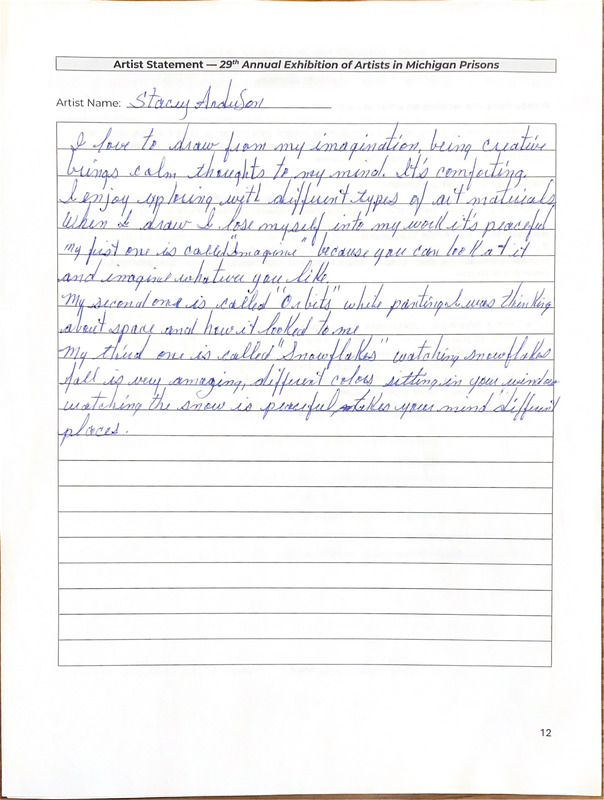 Artist Statement — 29th Annual Exhibition of Artists in Michigan Prisons
Artist Name: Stacey Anderson
I love to draw from my imagination, being creative
brings calm thoughts to my mind. It's comforting.
I enjoy exploring with different types of art materials,
When I draw I lose myself into my work it's peaceful
my first one is called "Imagine" because you can look at it
and imagine whatever you like.
My second one is called "Orbits" while painting I was thinking
about space and how it looked to me
My third one is called "Snowflakes" watching snowflakes
fall is very amazing, different colors sitting in your window
watching the snow is peaceful, takes your mind different
places.
12